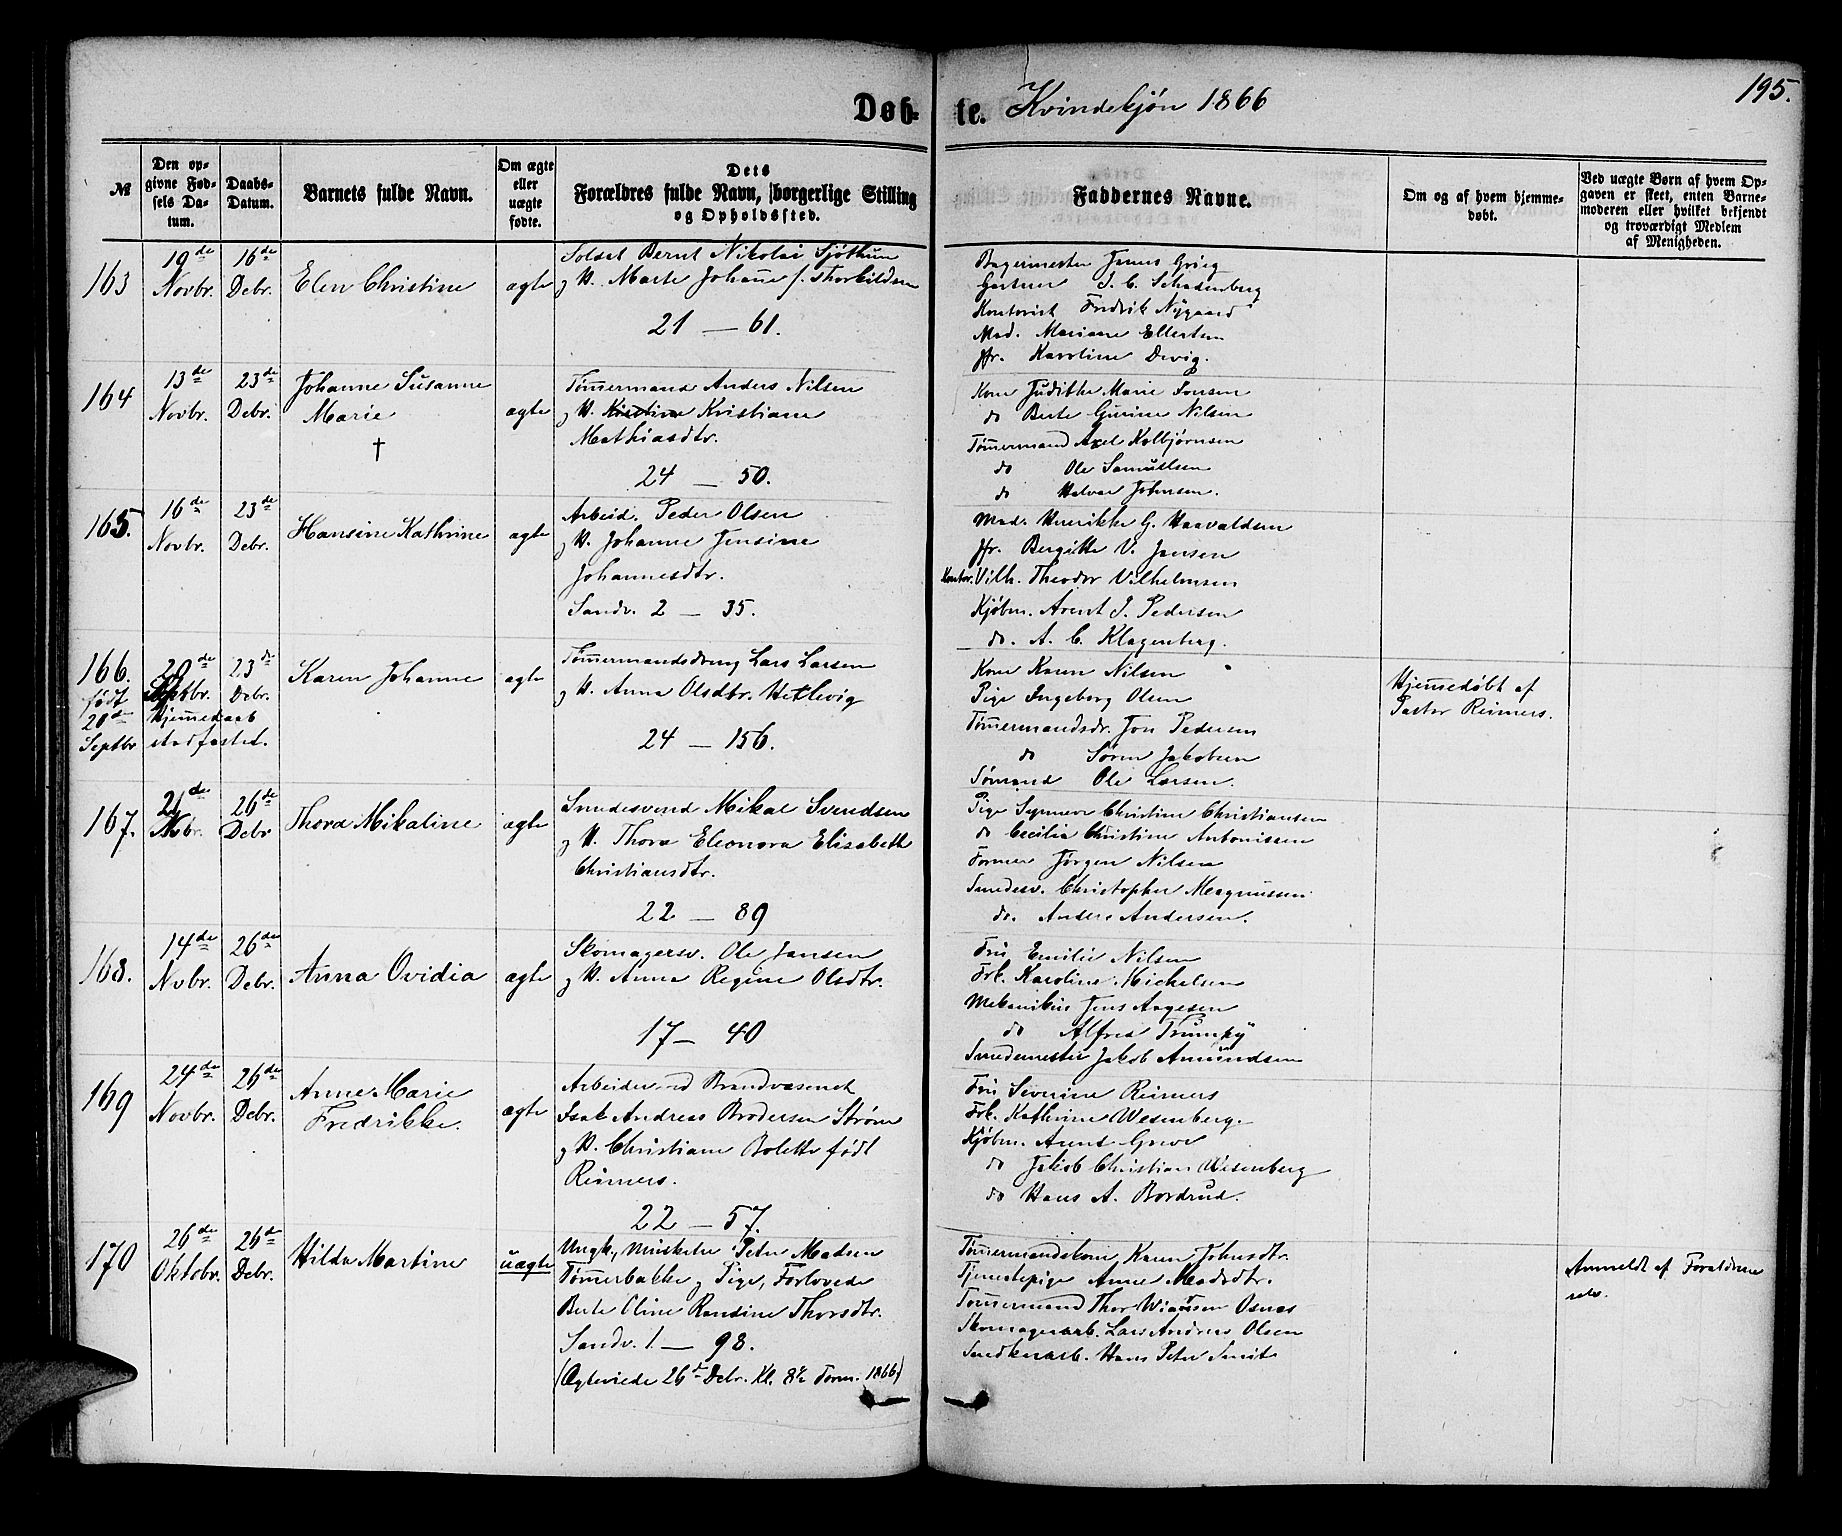 Døb-te. Kvindekjøn 1866
195.
№
Den op-
givne Fød-
sels Da-
tum.
Daabs-
Datum.
Barnets fulde Navn.
Om ægte
eller
uægte
fødte.
Dets
Forældres fulde Navn, borgerlige Stilling
og Opholdssted.
Faddernes Navne.
Om og af hvem hjemme-
døbt.
Ved uægte Børn af hvem Op-
gaven er skeet, enten Barne-
moderen eller hvilket bekjendt
og troværdigt Medlem
af Menigheden.
163
19de
Novbr.
16de
Debr.
Elen Christine
ægte
Soldat Bernt Nikolai Sjøthun
og H. Marte Johanne f. Thorkildsen
21 — 61.
Bagermester James Grieg
Gartner J. C. Schadenberg
Kontorist Fredrik Nygaard
Mad. Mariane Ellertsen
Jfr. Karoline Devig.
164
13de
Novbr.
23de
Debr.
Johanne Susanne
Marie
†
ægte
Tømermand Anders Nilsen
og H. Kristine Kristiane
Mathiasdtr.
24 — 50.
Kone Judithe Marie Iversen
do Berte Gurine Nilsen
Tømermand Axel Kolbjørnsen
do Ole Samuelsen
do Halvor Johnsen.
165.
16de
Novbr.
23de
Debr.
Hansine Kathrine
ægte
Arbeid. Peder Olsen
og H. Johanne Jensine
Johannesdtr.
Sandv. 2 — 35.
Mad. Henrikke G. Haavaldsen
Jfr. Bergitte V. Jansen
Kontor. Vilh. Theodor Vilhelmsen
Kjøbm. Arent J. Pedersen
do. A. C. Klagenberg.
166.
født
20de
Septbr
20de
Septbr.
Hjemedaab
stadfæstet.
23de
Debr.
Karen Johanne
ægte
Tømermandsdreng Lars Larsen
og H. Anna Olsdtr. Hetlevig
24 — 156.
Kone Karen Nilsen
Pige Ingeborg Olsen
Tømermandsdr. Jon Pedersen
do Søren Jakobsen
Sømand Ole Larsen.
Hjemedøbt af
Pastor Reimers.
167.
21de
Novbr.
26de
Debr
Thora Mikaline
ægte
Smedesvend Mikal Svendsen
og H. Thora Eleonora Elisabeth
Christiansdtr.
22 — 89
Pige Synneve Christine Christiansen
do Cecilia Christine Antonissen
Former Jørgen Nilsen
Smedesv. Christopher Magnussen
do. Anders Andersen.
168.
14de
Novbr.
26de
Debr.
Anna Ovidia
ægte
Skomagersv. Ole Jansen
og H. Anna Regine Olsdtr.
17 — 40
Fru Emilie Nilsen
Frk. Karoline Michelsen
Mekanikus Jens Aagesen
do Alfred Trumpy
Smedemester Jakob Amundsen
169
24de
Novbr.
26de
Debr.
Anne Marie
Fredrikke.
ægte
Arbeider ved Brandvæsenet
Isak Andreas Brodersen Strøm
og H. Christiane Bolette født
Reimers.
22 — 57.
Fru Severine Reimers
Frk. Kathrine Wesenberg.
Kjøbm. Arent Greve
do Jakob Christian Wesenberg
do Hans A. Bordrud.
170
26de
Oktobr.
26de
Debr.
Hilda Martine
uægte
Ungk., Musketer Peter Madsen
Tømerbakke og Pige, Forlovede
Berte Oline Randine Thorsdtr.
Sandv. 1 — 98.
(Ægteviede 26de Debr. Kl. 8½ Form. 1866)
Tømermandskone Karen Johnsdtr.
Tjenestepige Anne Madsdtr.
Tømermand Thor Osnes
Skomagerarb. Lars Andreas Olsen
Snedkerarb. Hans Peter Smit
Anmeldt af Forældrene
selv.